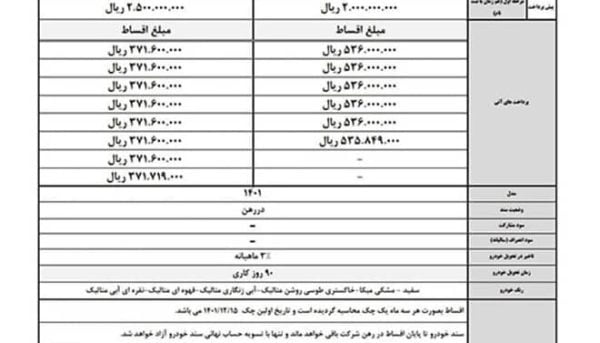 پیش پرداخت مرحله اول (هم زمان با ثبت نام) ۲.۰۰۰.۰۰۰.۰۰۰ ریال ۲.۵۰۰.۰۰۰.۰۰۰ ریال
مبلغ اقساط مبلغ اقساط
۵۳۶.۰۰۰.۰۰۰ ریال ۳۷۱.۶۰۰.۰۰۰ ریال
۵۳۶.۰۰۰.۰۰۰ ریال ۳۷۱.۶۰۰.۰۰۰ ریال
پرداخت های آتی ۵۳۶.۰۰۰.۰۰۰ ریال ۳۷۱.۶۰۰.۰۰۰ ریال
۵۳۶.۰۰۰.۰۰۰ ریال ۳۷۱.۶۰۰.۰۰۰ ریال
۵۳۶.۰۰۰.۰۰۰ ریال ۳۷۱.۶۰۰.۰۰۰ ریال
۵۳۵.۸۴۹.۰۰۰ ریال ۳۷۱.۶۰۰.۰۰۰ ریال
- ۳۷۱.۶۰۰.۰۰۰ ریال
- ۳۷۱.۷۱۹.۰۰۰ ریال
مدل ۱۴۰۱
وضعیت سند در رهن
سود مشارکت -
سود انصراف (سالیانه) -
تاخیر در تحویل خودرو ۳٪ ماهیانه
زمان تحویل خودرو ۹۰ روز کاری
رنگ خودرو سفید - مشکی میکا - خاکستری طوسی روشن متالیک - آبی زنگاری متالیک - قهوه ای متالیک - نقره ای آبی متالیک
اقساط بصورت هر سه ماه یک چک محاسبه گردیده است و تاریخ اولین چک ۱۴۰۱/۱۲/۱۵ می باشد.
سند خودرو تا پایان اقساط در رهن شرکت باقی خواهد ماند و تنها با تسویه حساب نهائی سند خودرو آزاد خواهد شد.